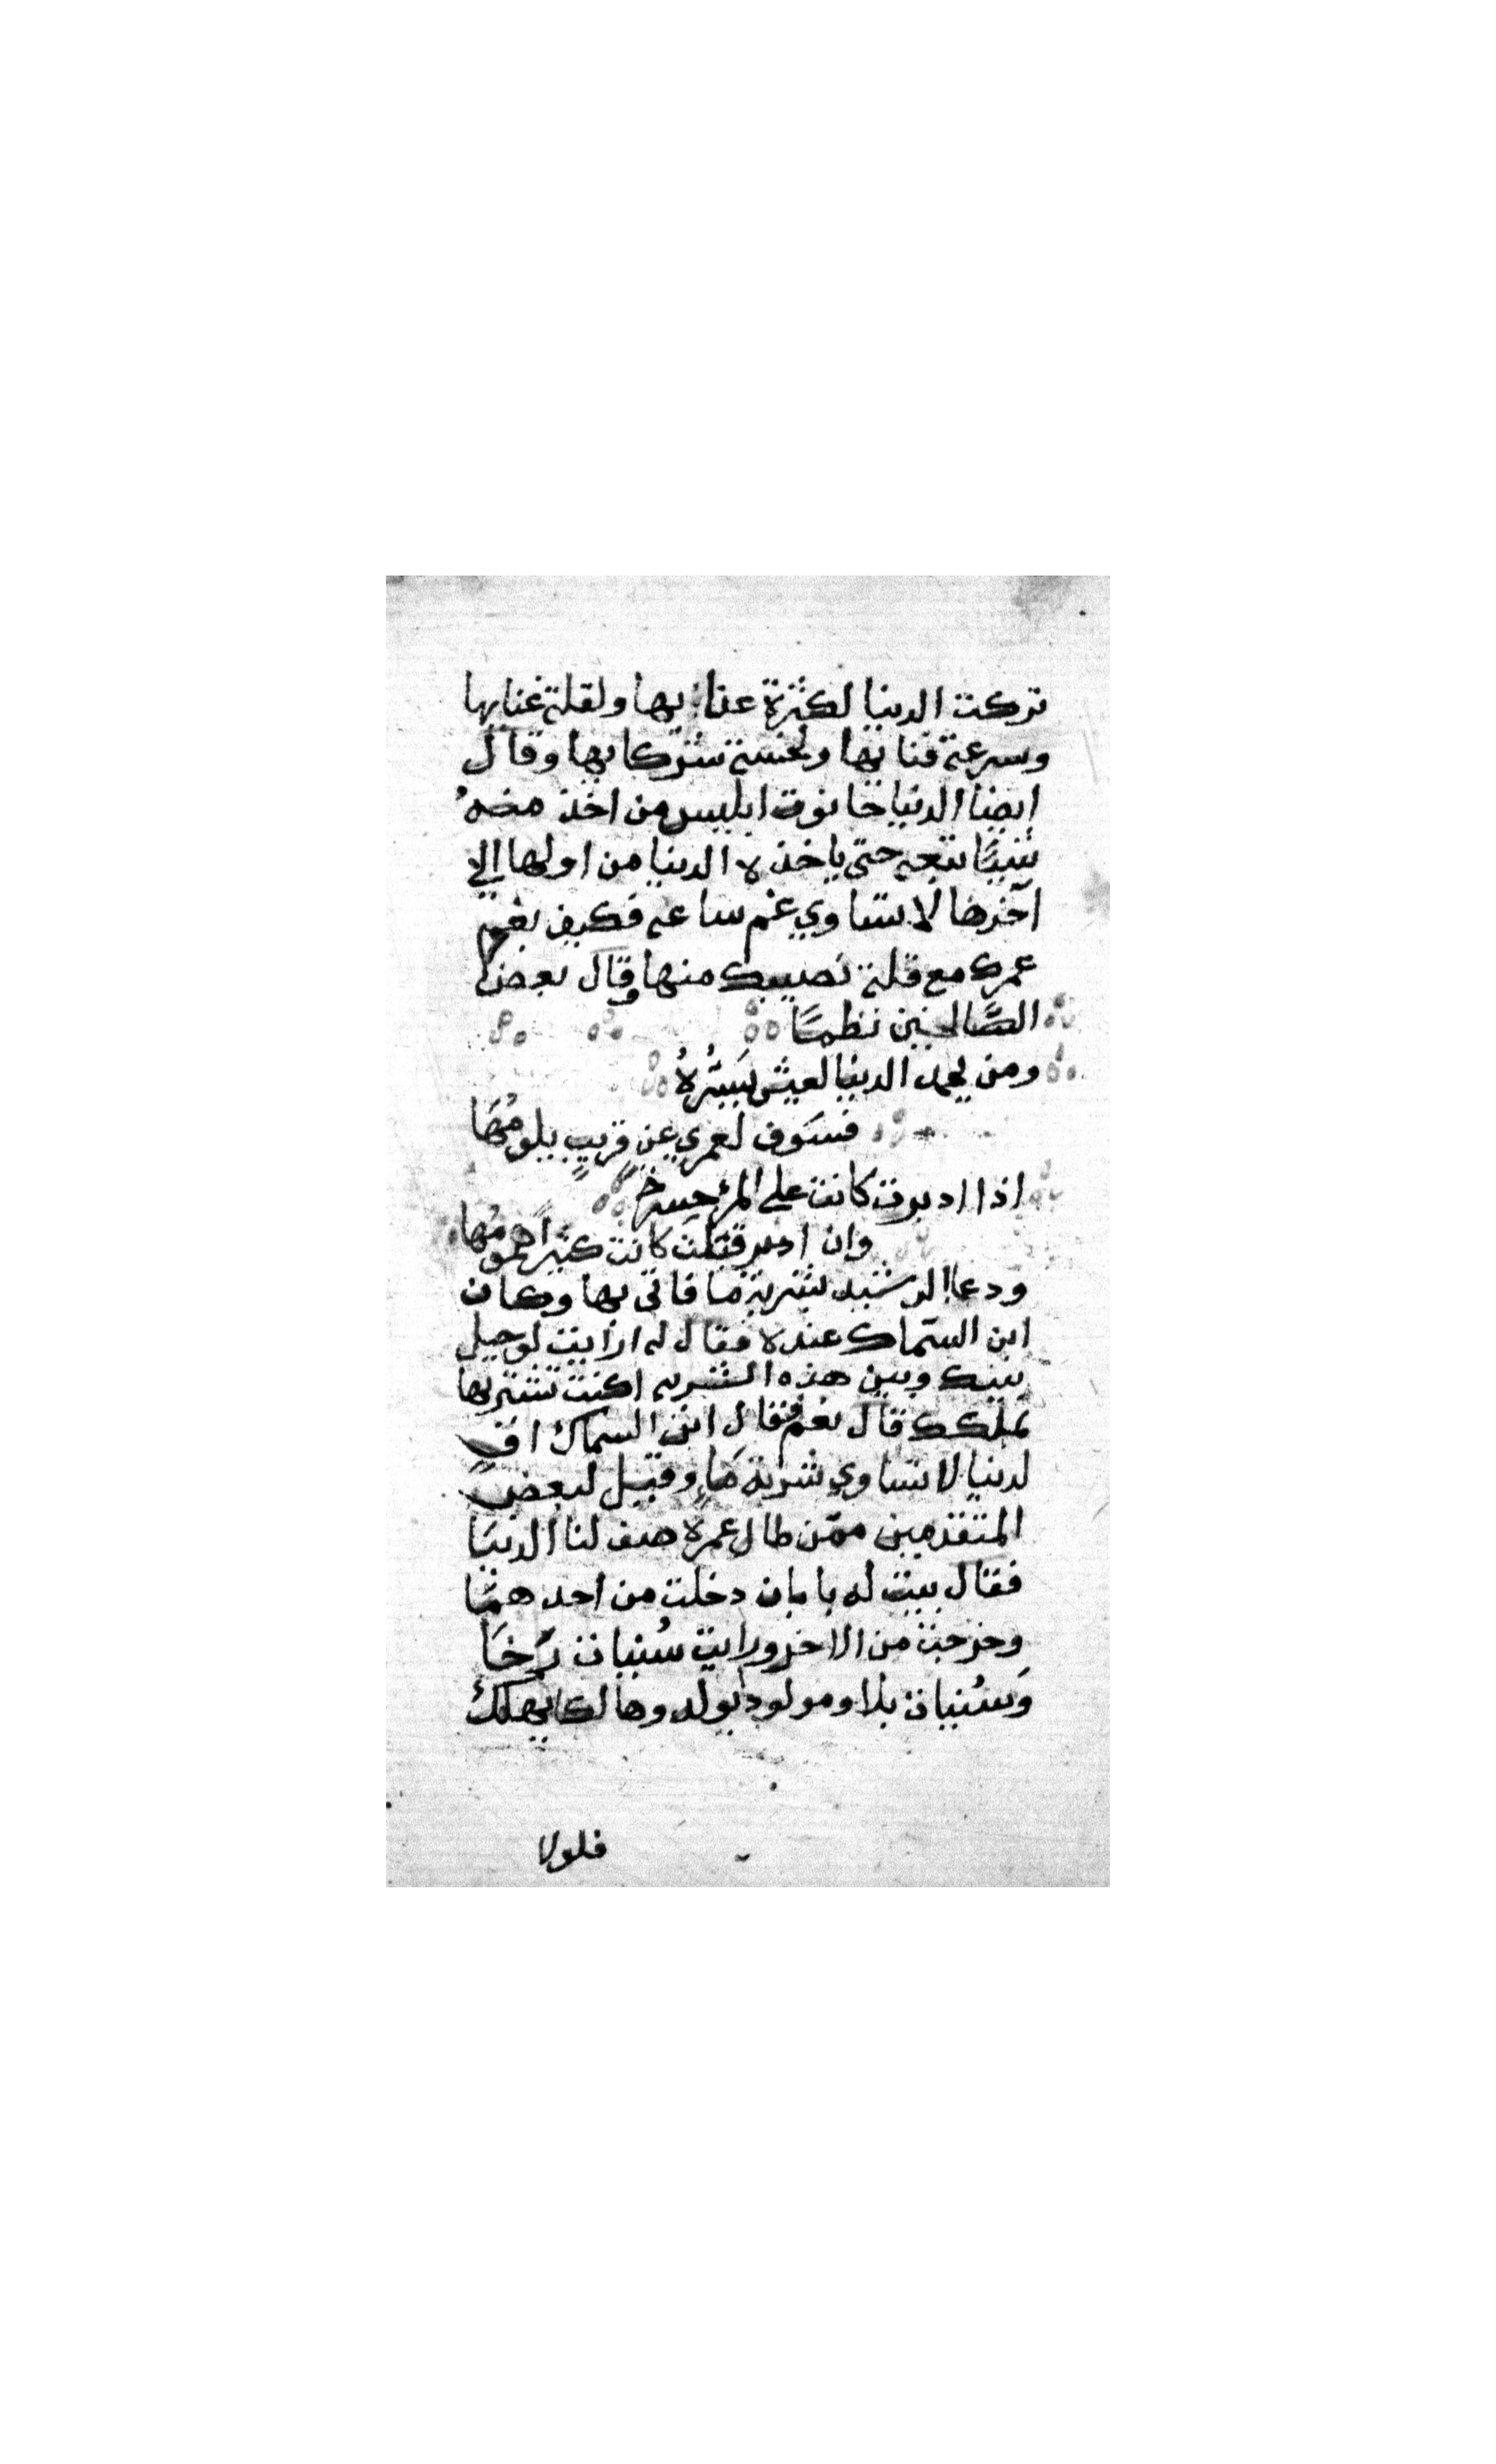 تركت الدنيا لكثرة عنايها ولقلة غنايها
وسرعة فنايها ولخسة شركايها وقال
ايضا الدنيا حانوت ابليس من اخذ منه
شيًا تبعه حتى ياخذه الدنيا من اولها الي
آخرها لا تساوي غم ساعه فكيف بغم
عمرك مع قلة نصيبك منها وقال بعض
الصَّالحين نظمًا
ومن يحمد الدنيا لعيش يَسُرُّهُ
فسَوف لعمري عن قريبٍ يلومُهَا
اذا ادبرت كانت علي المرء حسرة
وان اقبلت كانت كثيرًا همومُها
ودعا الرشيد بشربة ما فاتى بها وكان
ابن السّماك عنده فقال له ارايت لو حيل
بينك وبين هذه الشربه اكنت تشتريها
بملكك قال نعم فقال ابن السماك افٍ
لدنيا لا تساوي شربة مَاءٍ وقيل لبعض
المتقدمين ممّن طال عمره صف لنا الدنيَا
فقال بيت له بابان دخلت من احدهما
وخرجت من الاخر ورايت سُنيات رَخَا
وَسُنيات بلا ومولود يولد وهالكا يهلك
فلولا